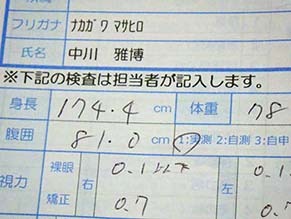 フリガナ ナカガワ マサヒロ
氏名 中川 雅博
※下記の検査は担当者が記入します。
身長 174.4 cm 体重 78
腹囲 81.0 cm 1:実測 2:自測 3:自申
視力 裸眼 右 0.1以下 左 0.1
矯正 0.7 0.7